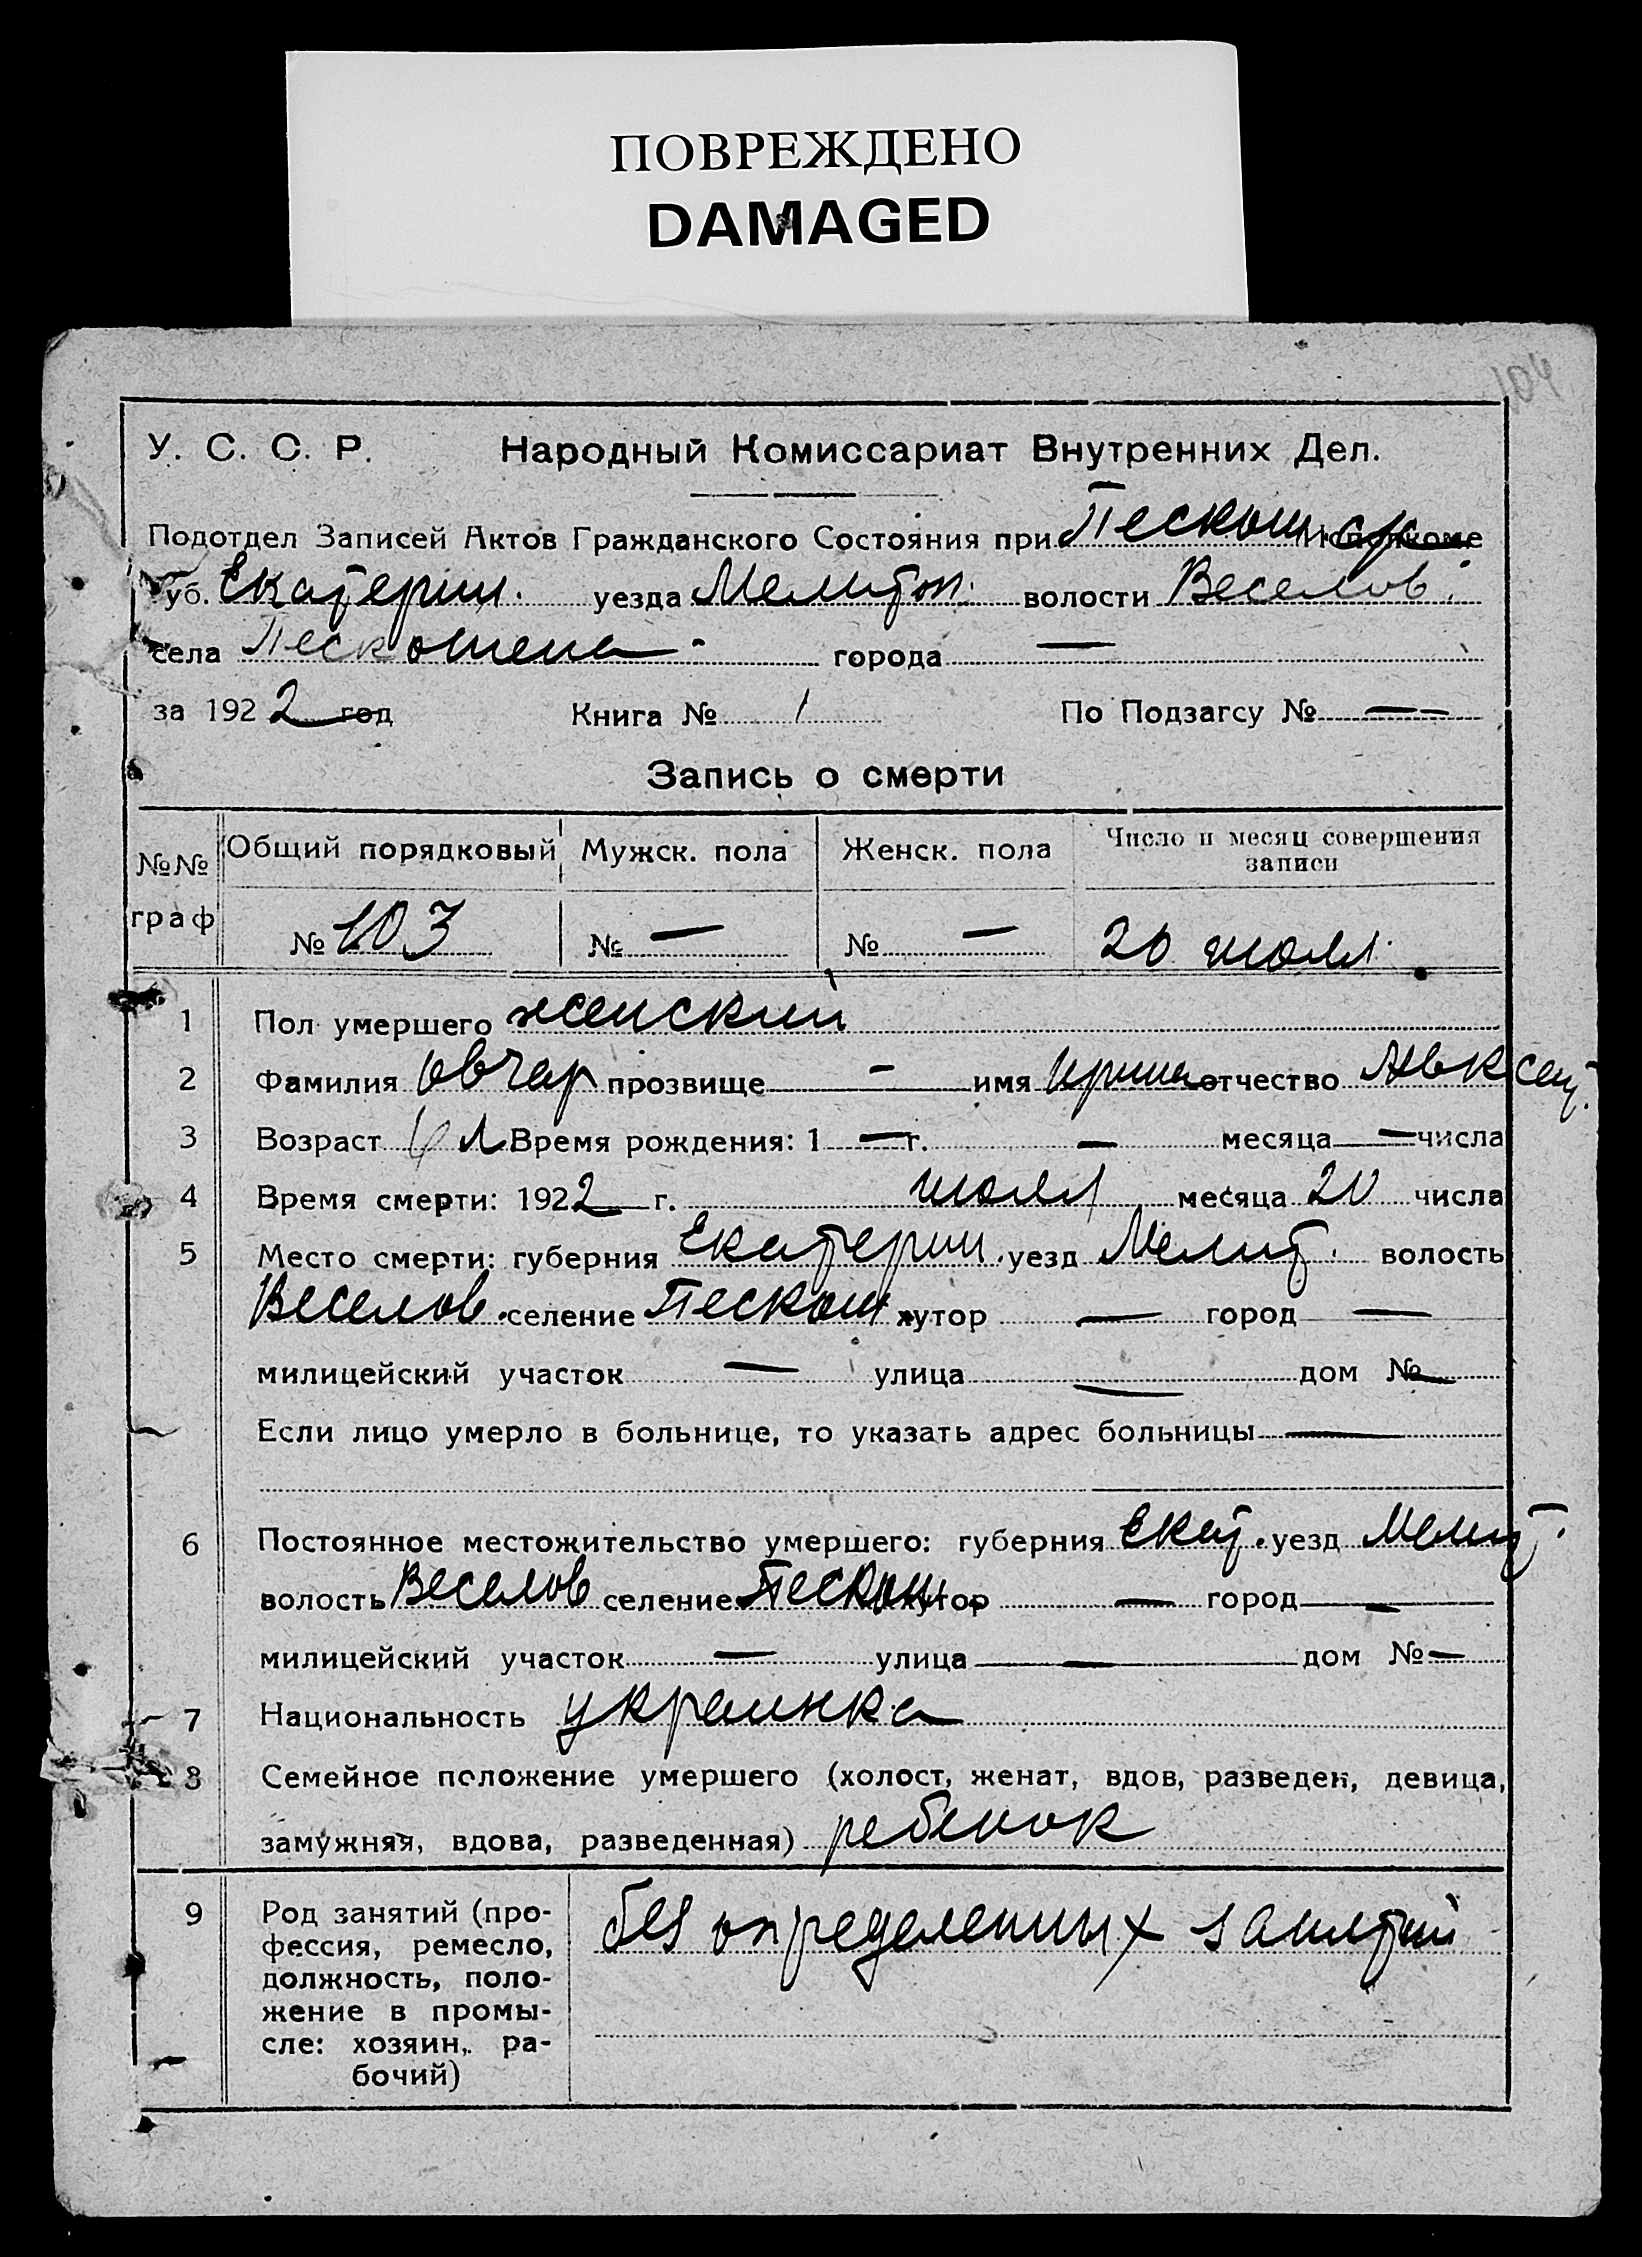 ПОВРЕЖДЕНО
DAMAGED
104
У. С. С. Р. Народный Комиссариат Внутренних Дел.
Подотдел Записей Актов Гражданского Состояния при Пескош. Исполкоме
уб. Екатерин. уезда Мелитоп. волости Веселов.
села Пескошена города —
за 1922 год Книга № 1 По Подзагсу № —
Запись о смерти
№№ граф Общий порядковый Мужск. пола Женск. пола Число и месяц совершения записи
№ 103 № — № — 20 июля
1 Пол умершего женский
2 Фамилия Овчар прозвище — имя Ирина отчество Авксент.
3 Возраст л Время рождения: 1 — г. — месяца — числа
4 Время смерти: 1922 г. июля месяца 20 числа
5 Место смерти: губерния Екатерин. уезд Мелит. волость
Веселов. селение Пескош. хутор — город —
милицейский участок — улица — дом № —
Если лицо умерло в больнице, то указать адрес больницы —
6 Постоянное местожительство умершего: губерния Екат. уезд Мелит.
волость Веселов селение Пескош. хутор — город —
милицейский участок — улица — дом № —
7 Национальность украинка
8 Семейное положение умершего (холост, женат, вдов, разведен, девица,
замужняя, вдова, разведенная) ребенок
9 Род занятий (про- без определенных занятий
фессия, ремесло,
должность, поло-
жение в промы-
сле: хозяин, ра-
бочий)